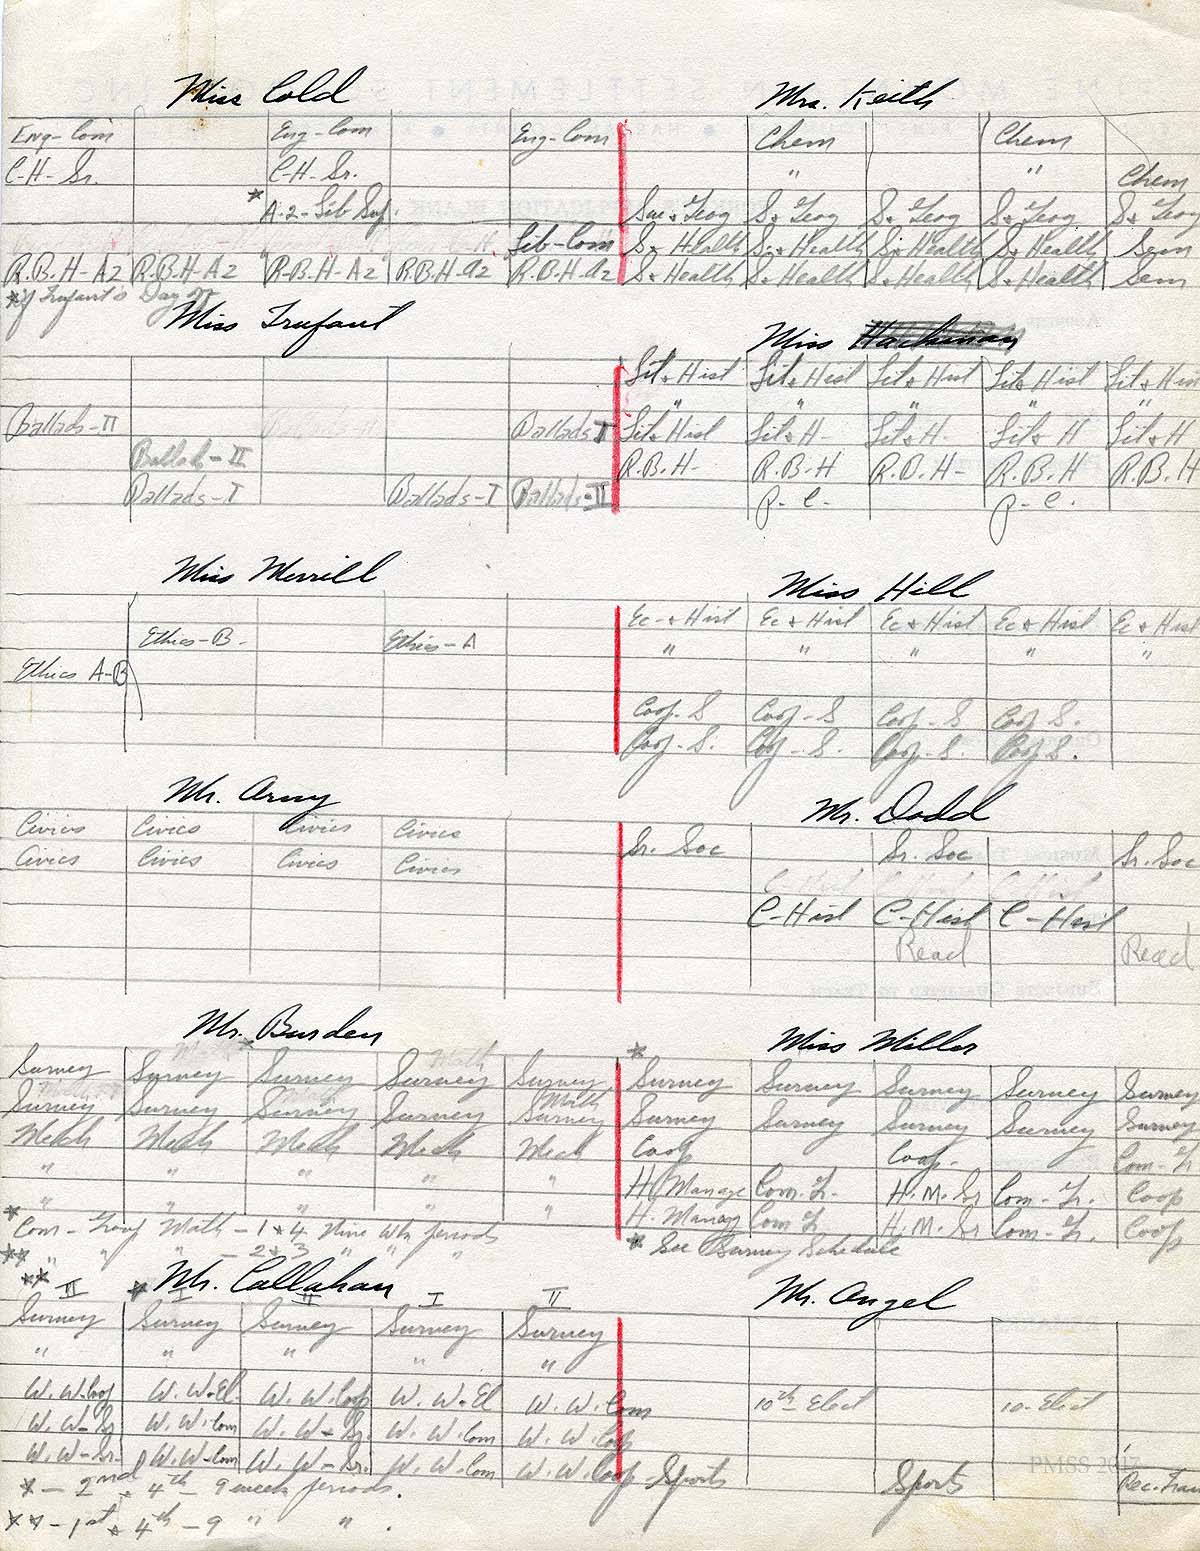 Miss Cold
Eng-Com Eng-Com Eng-Com
C-H-Sr. C-H-Sr.
* A-2-Lib Sup.
Lib-Com
R.B.H-A2 R.B.H-A2 R.B.H-A2 R.B.H-A2 R.B.H-A2
*if Trufant's Day off
Mrs. Keith
Chem Chem
" " Chem
Soc + Geog S + Geog S + Geog S + Geog S + Geog
S + Health S + Health S + Health S + Health Sem
S + Health S + Health S + Health S + Health Sem
Miss Trufant
Ballads-II Ballads I
Ballads-II
Ballads-I Ballads-I Ballads-II
Miss
Lit + Hist Lit + Hist Lit + Hist Lit + Hist Lit + Hist
" " " "
Lit + Hist Lit + H- Lit + H- Lit + H Lit + H
R.B.H- R.B.H R.B.H- R.B.H R.B.H
P-C- P-C.
Miss Merrill
Ethics-B- Ethics-A
Ethics A-B
Miss Hill
Ec-+ Hist Ec + Hist Ec + Hist Ec + Hist Ec + Hist
" " " " "
Coop-S Coop-S Coop-S Coop S.
Coop-S. Coop-S. Coop-S. Coop S.
Mr. Army
Civics Civics Civics Civics
Civics Civics Civics Civics
Mr. Dodd
Sr. Soc Sr. Soc Sr. Soc
C-Hist C-Hist C-Hist
C-Hist C-Hist C-Hist
Read Read
Mr. Burden
Survey Survey Survey Survey Survey
Survey Survey Survey Survey Math Survey
Mech Mech Mech Mech Mech
" " " " "
" " " " "
* Com-Group Math - 1 + 4 Nine wk periods
** " " " - 2 + 3 " " "
Miss Miller
*
Survey Survey Survey Survey Survey
Survey Survey Survey Survey Survey
Coop Coop- Com-Y.
H. Manage Com-Y. H.M.Sr Com-Y. Coop
H. Manag Com Y. H-M-Sr Com-Y. Coop
* See Survey Schedule
Mr. Callahan
** II * I II I II
Survey Survey Survey Survey Survey
" " " " "
W.W-Coop W.W-El. W.W.Coop W.W-El W.W.Com
W.W-Sr W.W.Com W.W-Sr. W.W.Com W.W.Coop
W.W-Sr. W.W-Com W.W-Sr. W.W.Com W.W.Coop
* - 2nd + 4th - 9 week periods.
** - 1st + 4th - 9 " " .
Mr. Angel
10th Elect 10-Elect
Sports Sports Rec.
PMSS 2017